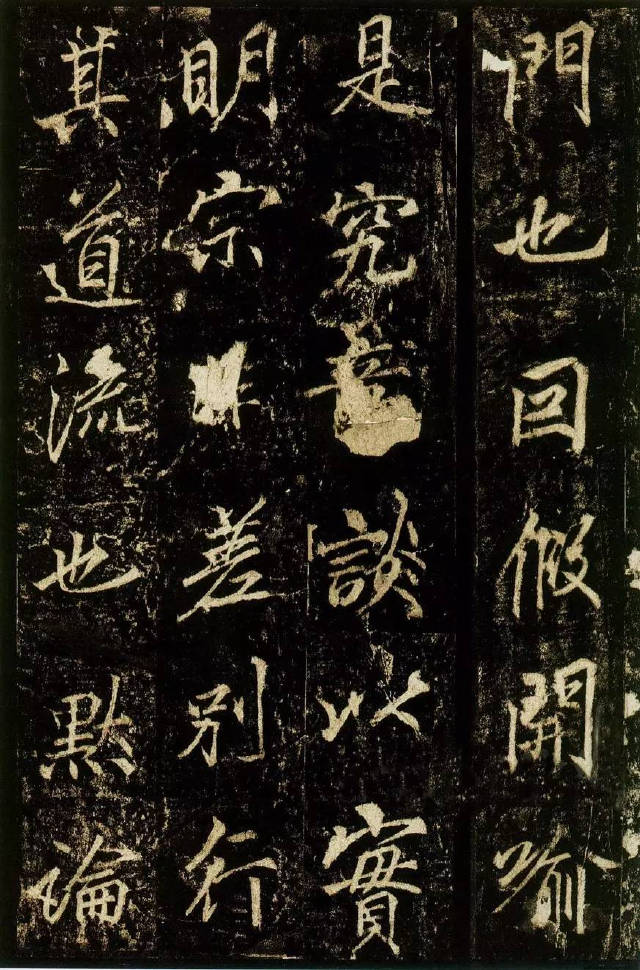 門也回假開喻
是究言談以實
明宗非差別行
其道流也點論